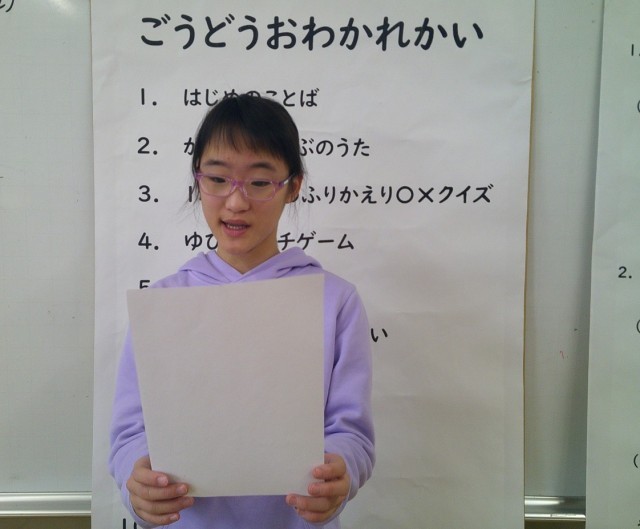 ごうどうおわかれかい
1. はじめのことば
2. か ぶのうた
3. 1 ふりかえり○×クイズ
4. ゆび チゲーム
5
い
1.
2.